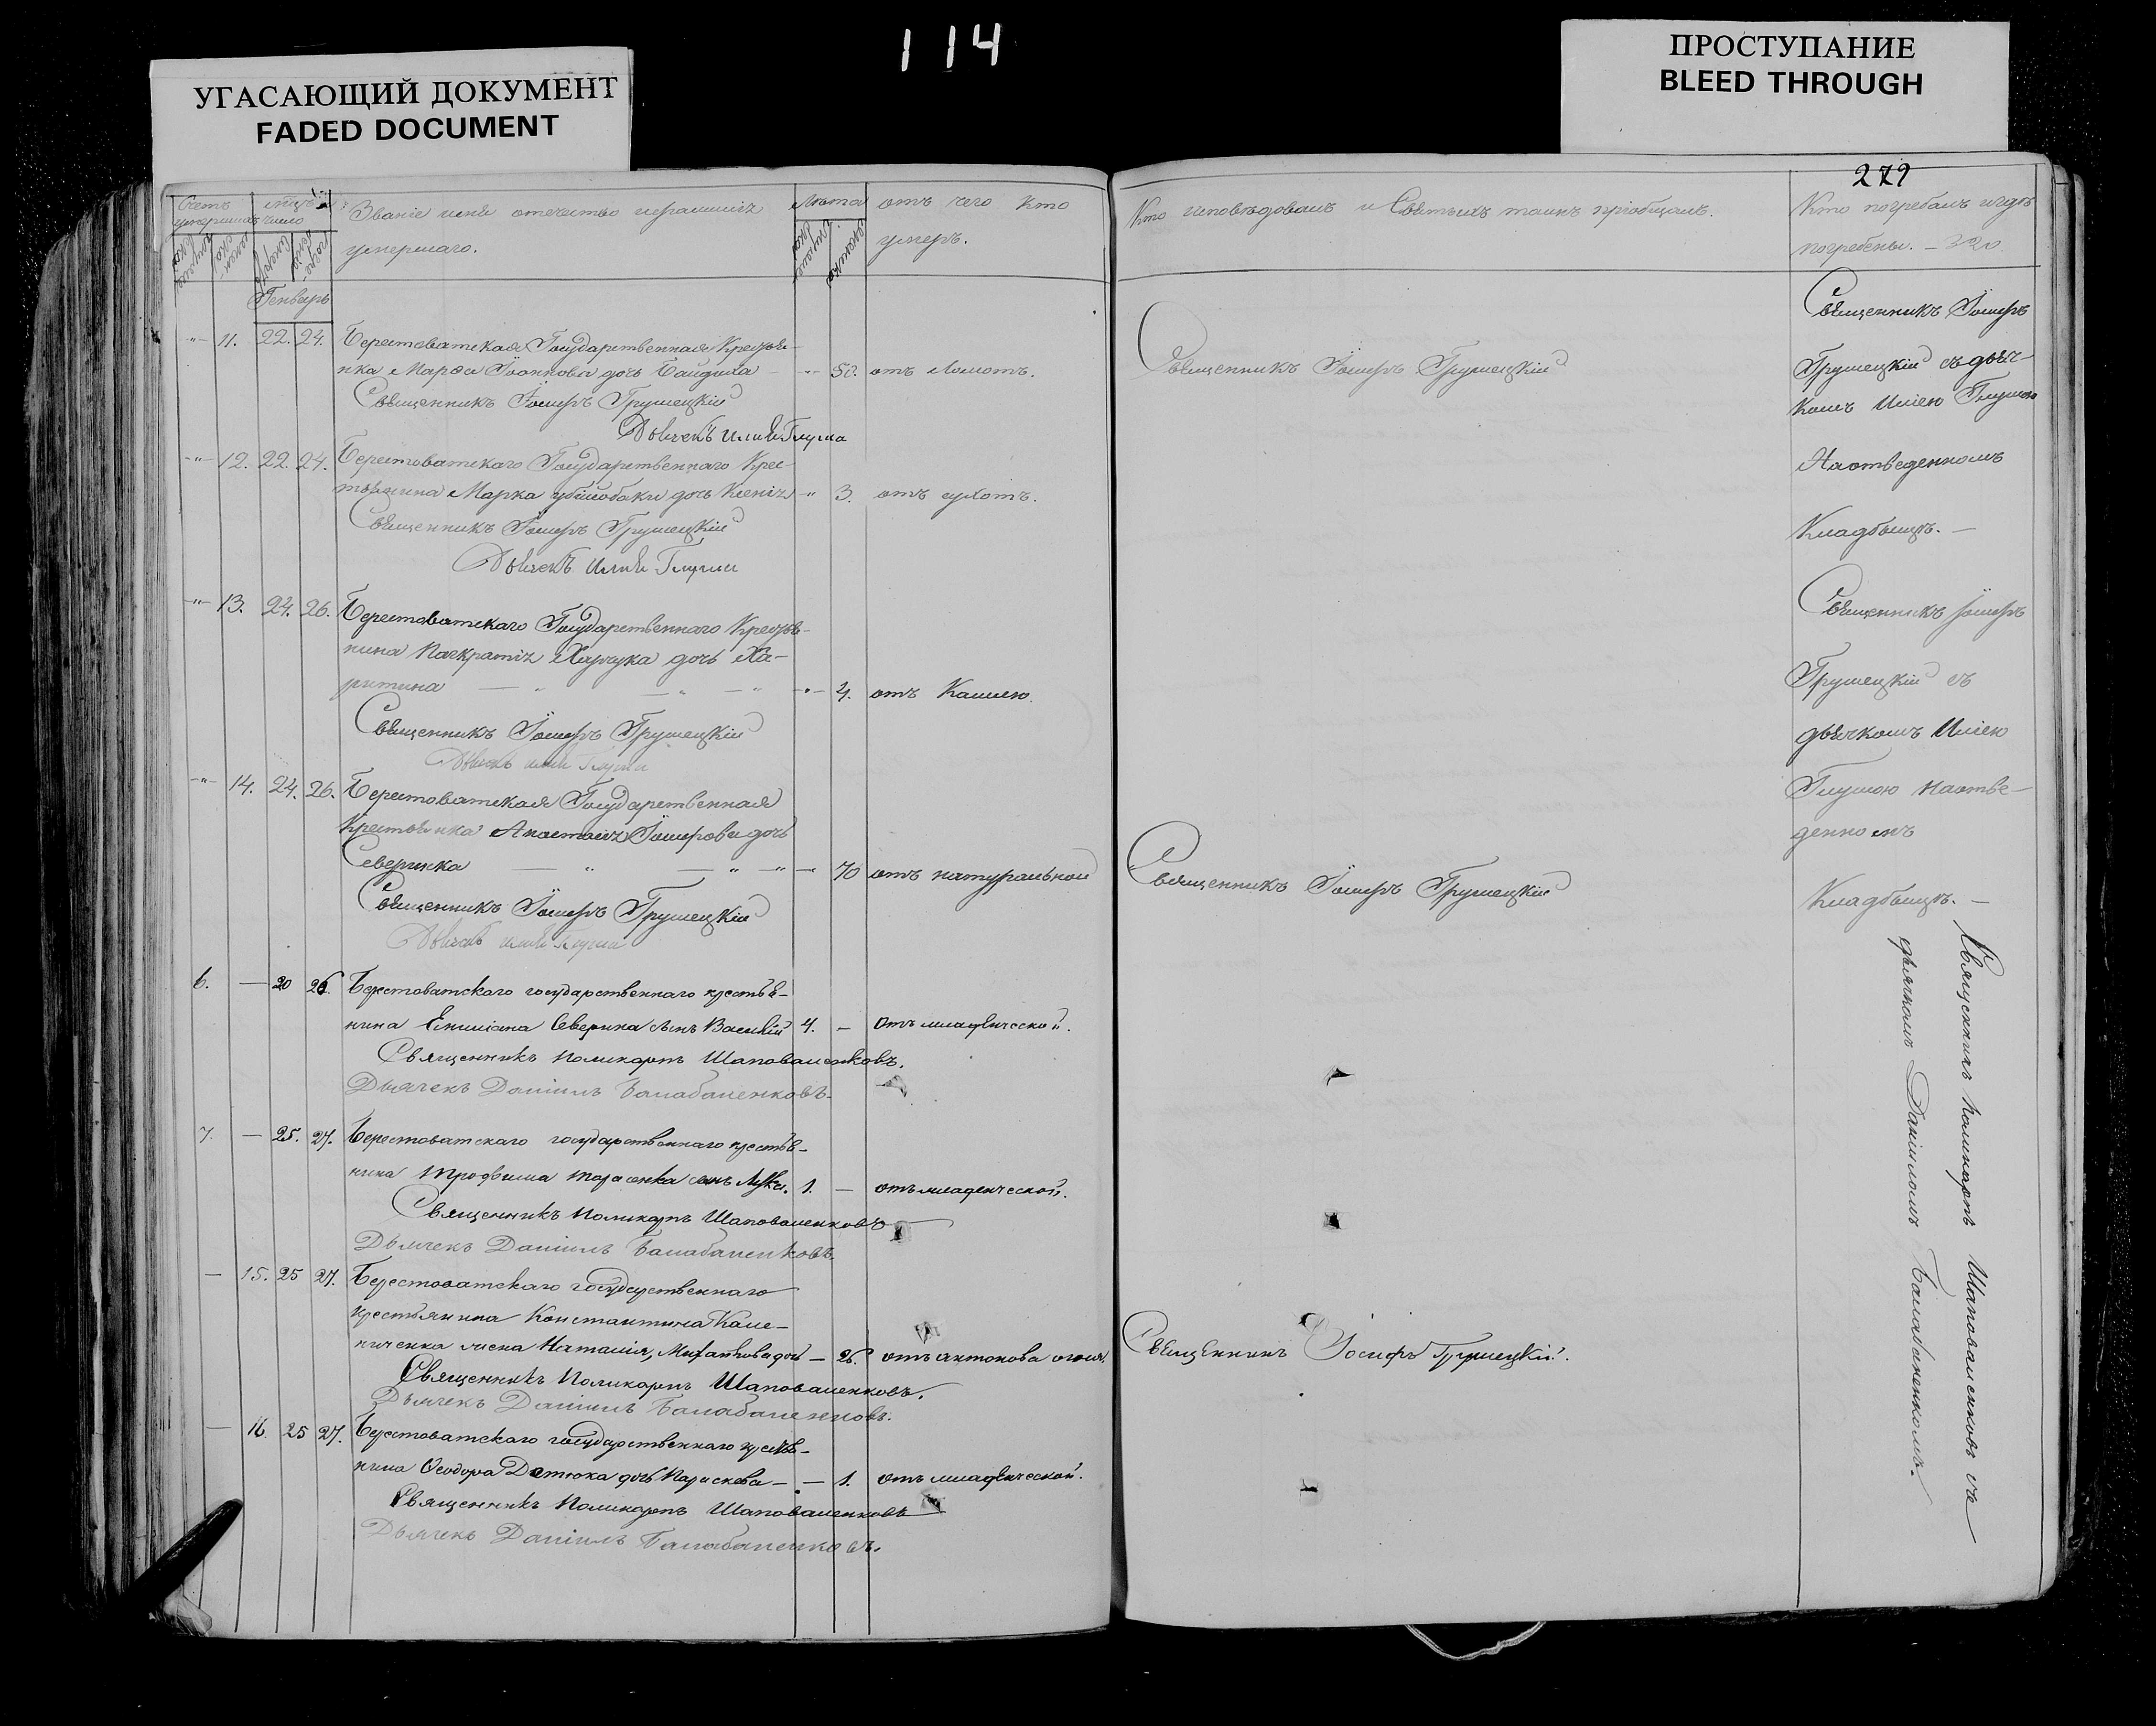 114
УГАСАЮЩИЙ ДОКУМЕНТ
FADED DOCUMENT
ПРОСТУПАНИЕ
BLEED THROUGH
272
Счетъ умершихъ
число
Званіе имя отечество
умершаго.
Лѣта
отъ чего кто
умеръ.
Кто исповѣдовалъ и Святыхъ таинъ пріобщалъ.
Кто погребалъ и гдѣ
погребены. – 320
Генварь
11. 22. 24. Берестоватская Государственная Крестья-
нка Марѳа Іоаннова дочь 50. отъ ломотъ.
Священникъ Іосифъ Грушецкій
Дьячекъ Илія Глуша
12. 22. 24. Берестоватскаго Государственнаго Крес-
тьянина Марка дочь 3. отъ сухотъ.
Священникъ Іосифъ Грушецкій
Дьячекъ Илія Глуша
13. 24. 26. Берестоватскаго Государственнаго Крестья-
нина дочь Ха-
ритина 4. отъ Кашлю.
Священникъ Іосифъ Грушецкій
Дьячекъ Илія Глуша
14. 24. 26. Берестоватская Государственная
Крестьянка Іосифова дочь
Северинка 70 отъ натуральной
Священникъ Іосифъ Грушецкій
Дьячекъ Илія Глуша
6. — 20 26. Берестоватскаго государственнаго крестья-
нина Емиліана Северина сынъ Василій 4. — отъ младенческой.
Священникъ Поликарпъ Шаповаленковъ.
Дьячекъ Даніилъ Балабаненковъ.
7. — 25. 27. Берестоватскаго государственнаго крестья-
нина Трофима Тарасенка сынъ Лука. 1. — отъ младенческой.
Священникъ Поликарпъ Шаповаленковъ
Дьячекъ Даніилъ Балабаненковъ.
— 15. 25 27. Берестоватскаго государственнаго
крестьянина Константина Кале-
ниченка жена Наталія, дочь — 26. отъ антонова огня.
Священникъ Поликарпъ Шаповаленковъ.
Дьячекъ Даніилъ Балабаненковъ.
— 16. 25 27. Берестоватскаго государственнаго крестья-
нина Ѳеодора дочь Параскева — — 1. отъ младенческой.
Священникъ Поликарпъ Шаповаленковъ
Дьячекъ Даніилъ Балабаненковъ.
Священникъ Іосифъ Грушецкій
Священникъ Іосифъ Грушецкій
Священникъ Іосифъ Грушецкій.
Священникъ Іосифъ
Грушецкій съ дьяч-
комъ Иліею Глушою
На отведенномъ
Кладбищѣ. —
Священникъ Іосифъ
Грушецкій съ
дьячкомъ Иліею
Глушою на отве-
денномъ
Кладбищѣ. —
Священникъ Поликарпъ Шаповаленковъ съ
дьячкомъ Даніиломъ Балабаненкомъ.